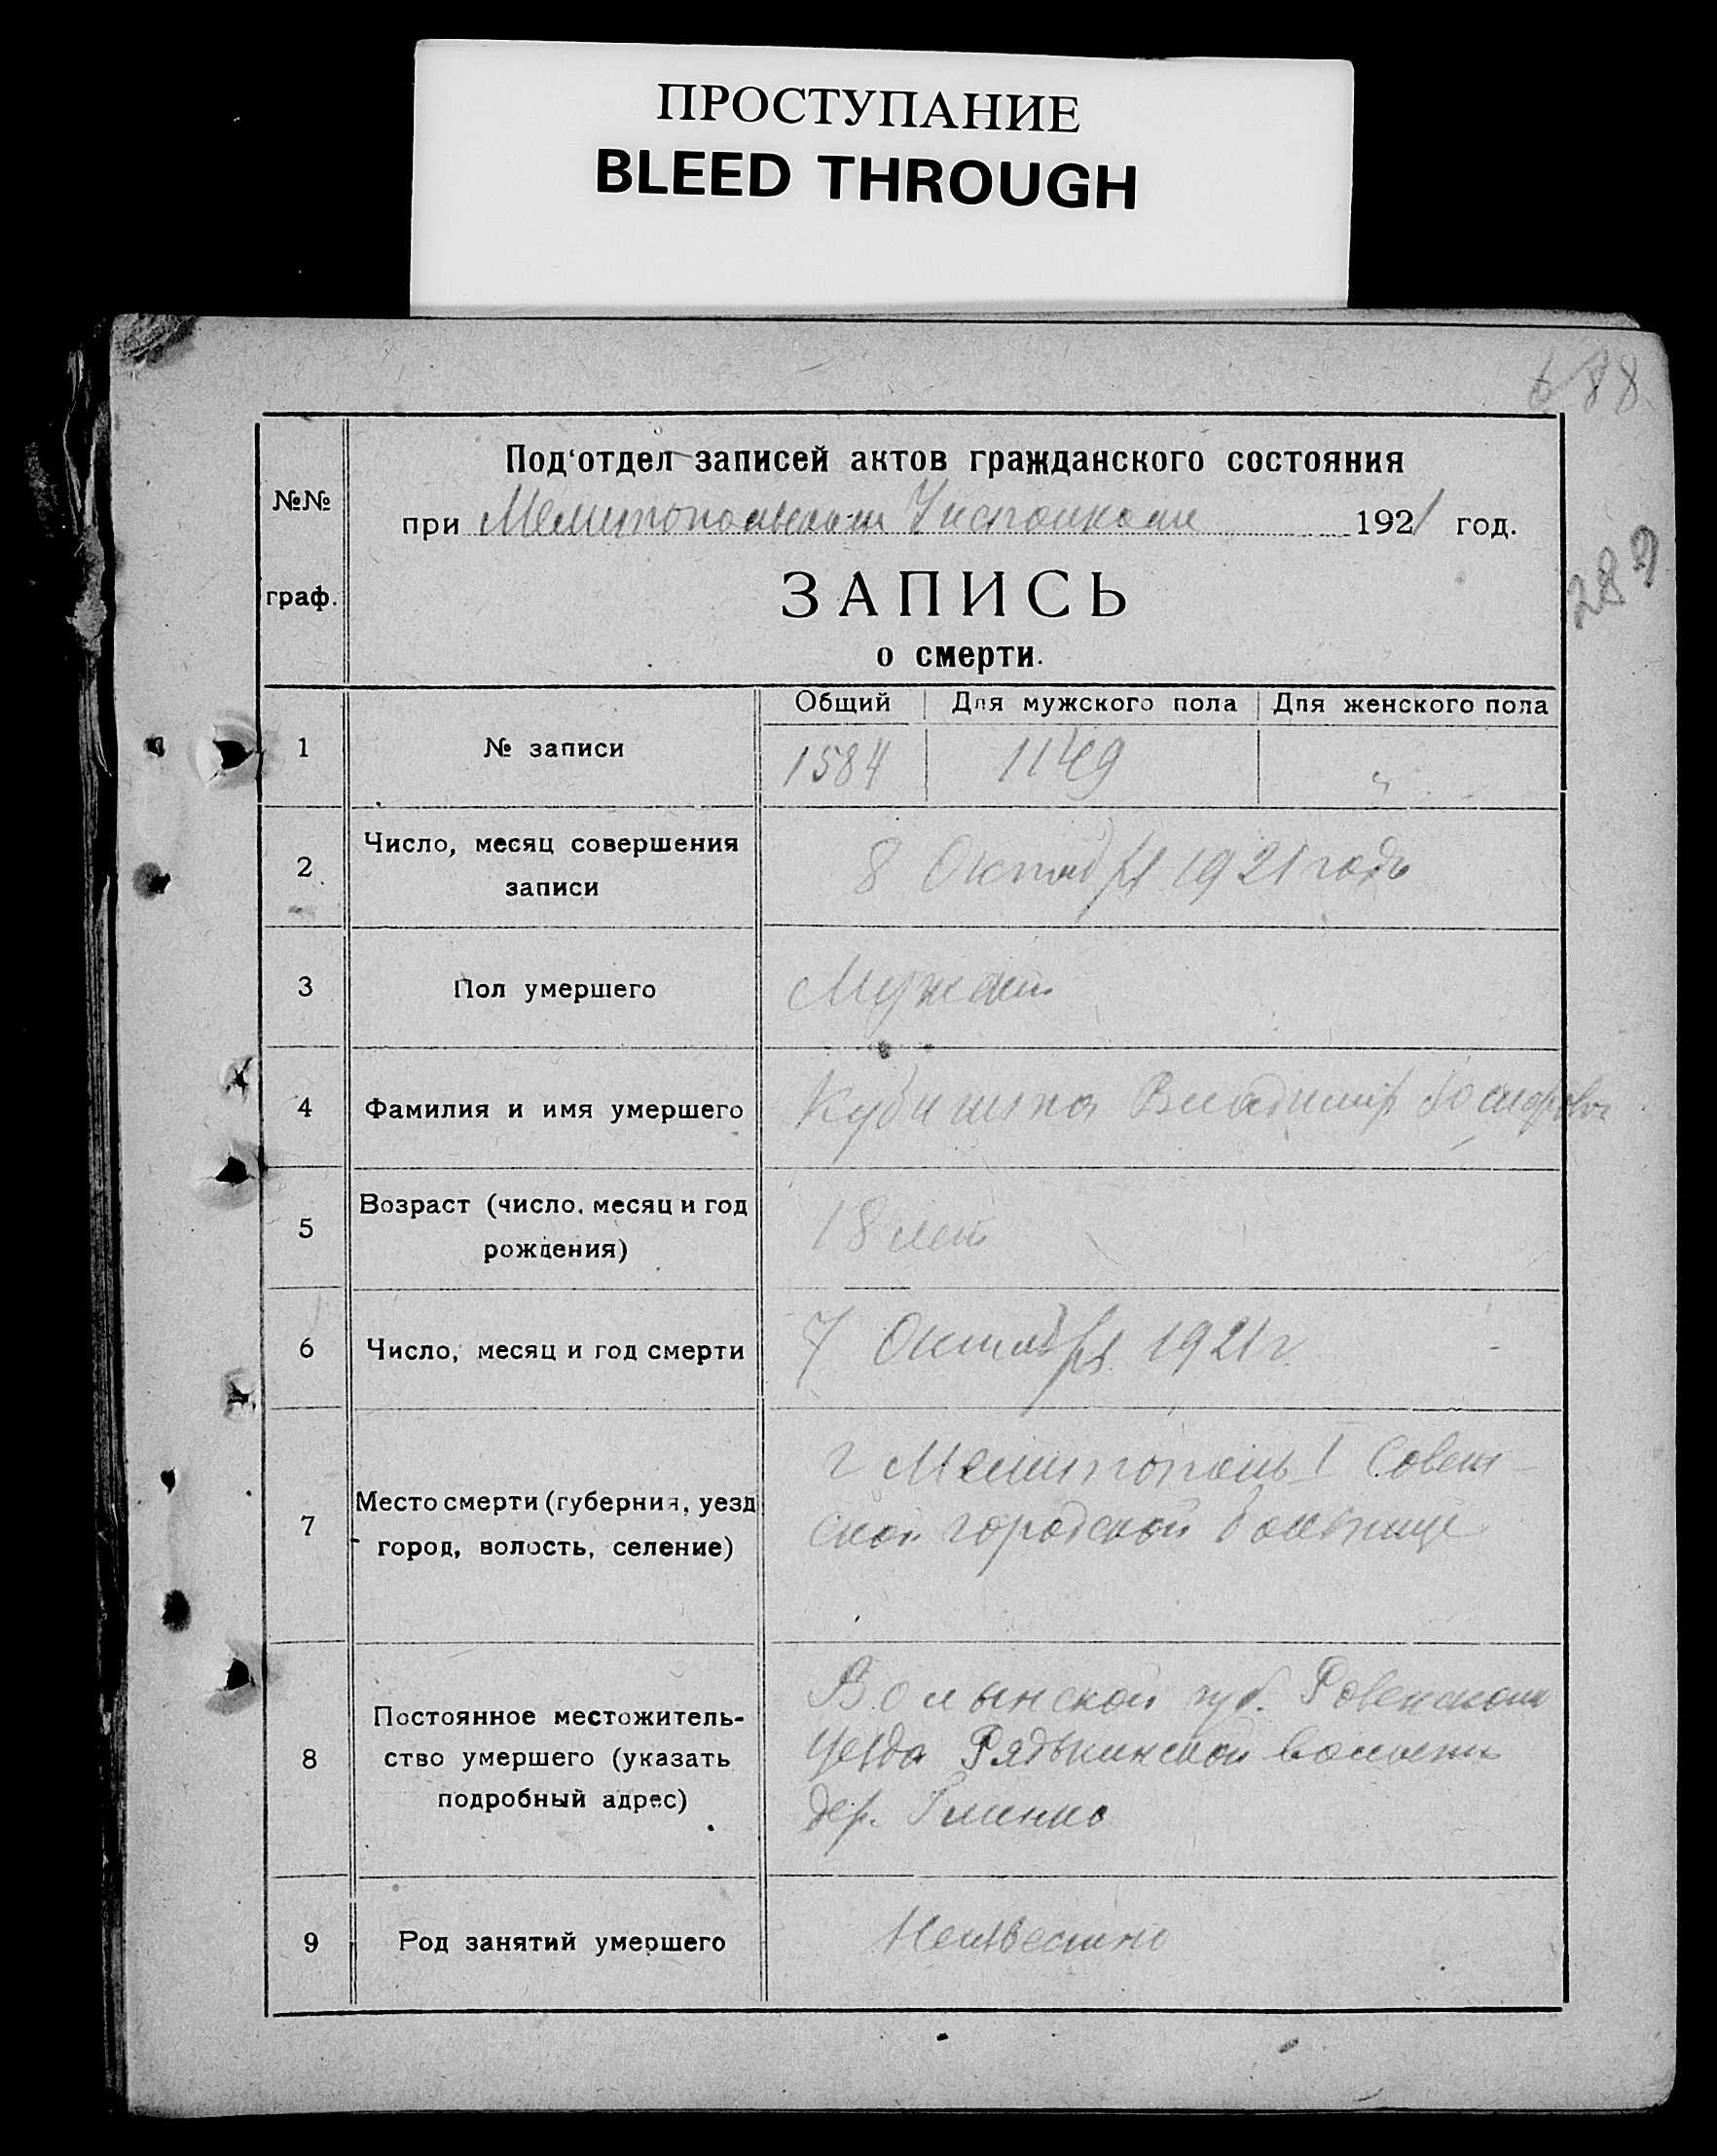 ПРОСТУПАНИЕ
BLEED THROUGH
688
289
№№
граф.
Под'отдел записей актов гражданского состояния
при Мелитопольском 1921 год.
ЗАПИСЬ
о смерти.
Общий Для мужского пола Для женского пола
1 № записи 1584 1149 "
2 Число, месяц совершения
записи
8 Октября 1921 года
3 Пол умершего
4 Фамилия и имя умершего Владимир
5 Возраст (число, месяц и год
рождения)
18 лет
6 Число, месяц и год смерти 7 Октября 1921 г.
7 Место смерти (губерния, уезд
город, волость, селение)
г Мелитополь I Совет-
ской городской больнице
8 Постоянное местожитель-
ство умершего (указать
подробный адрес)
Волынской губ. Ровенского
уезда волости
дер.
9 Род занятий умершего Неизвестно